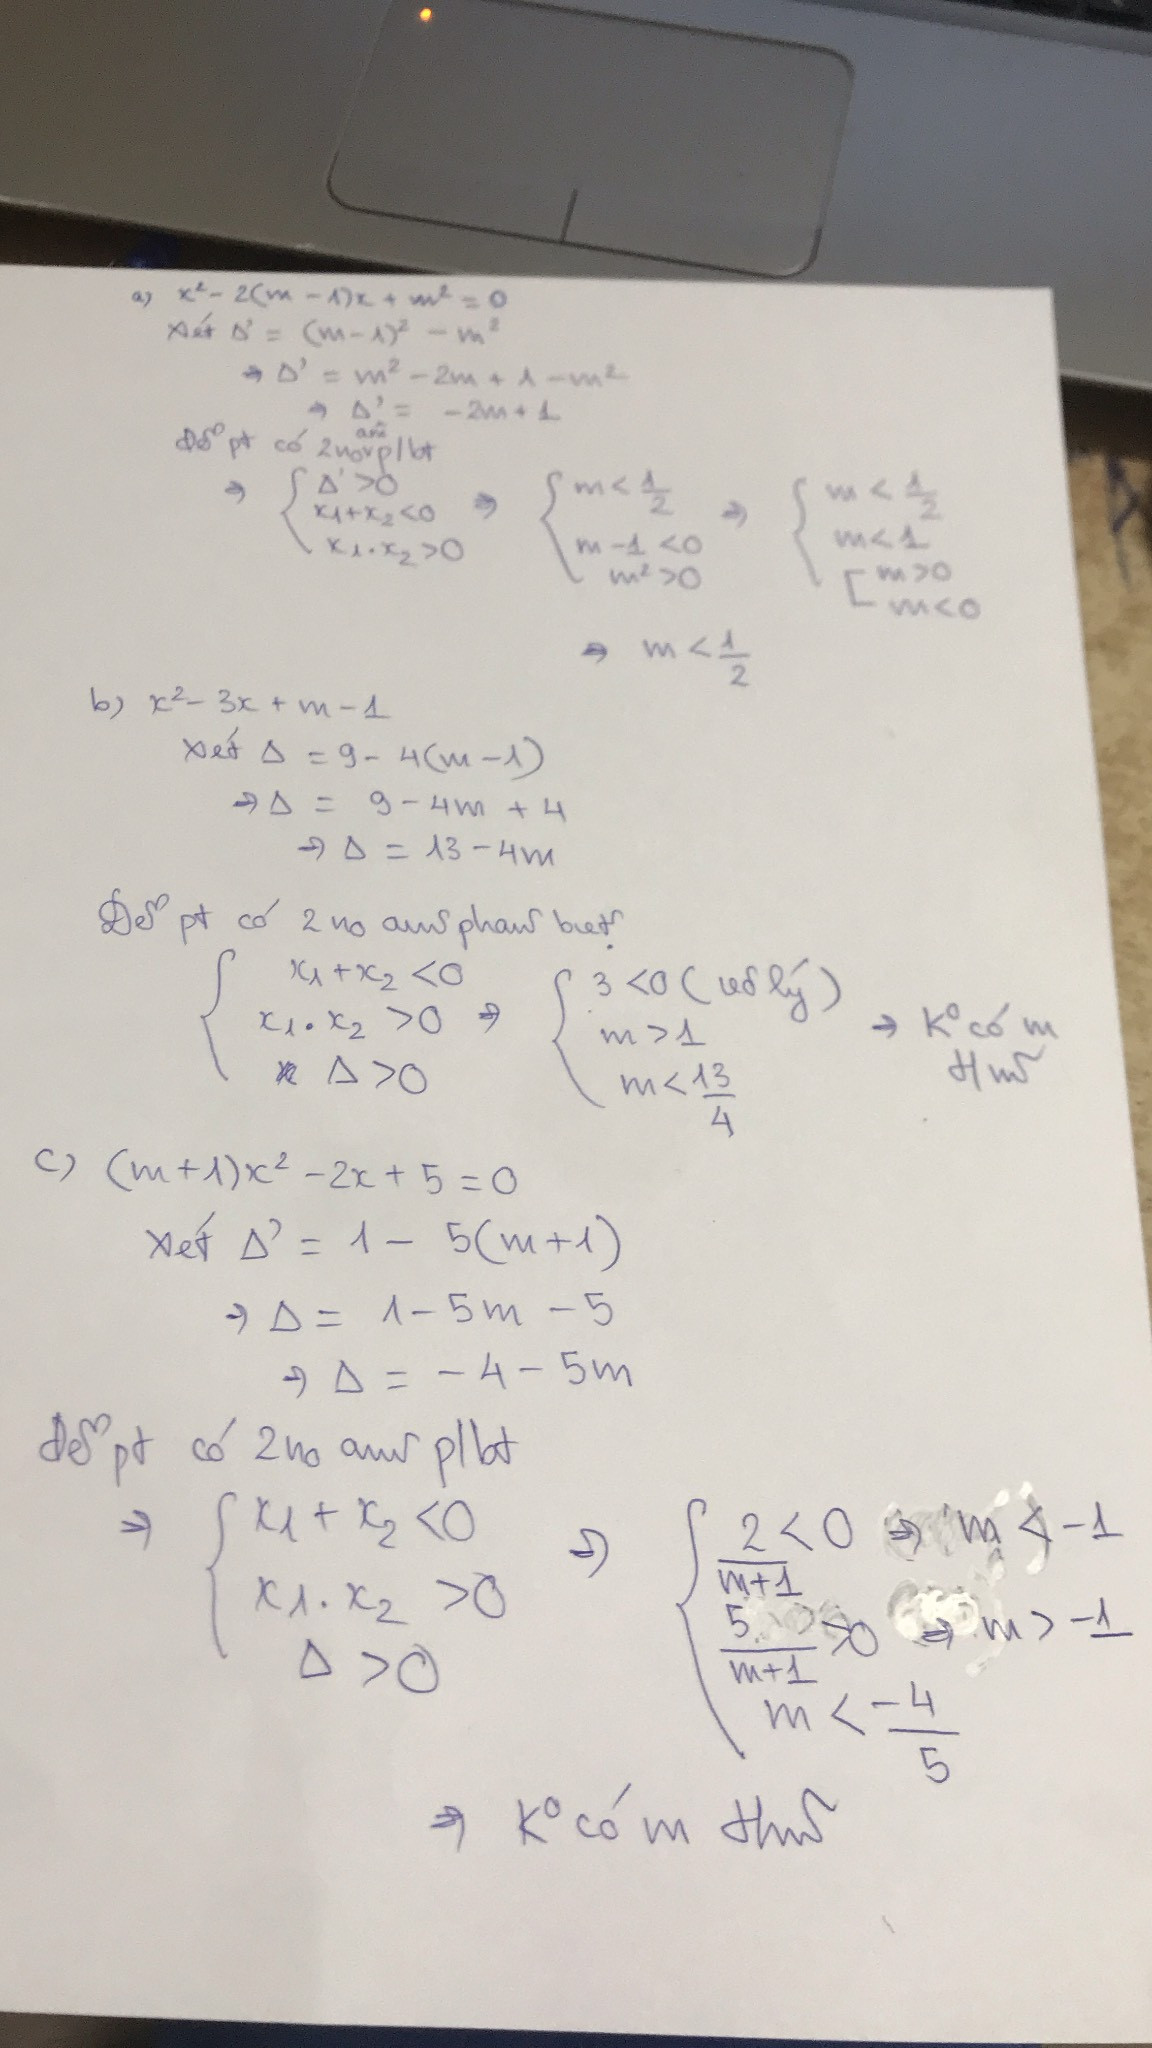 a) x² - 2(m - 1)x + m² = 0
Xét Δ' = (m-1)² - m²
⇒ Δ' = m² - 2m + 1 - m²
⇒ Δ' = -2m + 1
Để pt có 2 no âm p/bt
⇒ { Δ' > 0 ⇒ { m < 1/2 ⇒ { m < 1/2
x1 + x2 < 0 m - 1 < 0 m < 1
x1 . x2 > 0 m² > 0 [ m > 0
m < 0
⇒ m < 1/2
b) x² - 3x + m - 1
Xét Δ = 9 - 4(m - 1)
⇒ Δ = 9 - 4m + 4
⇒ Δ = 13 - 4m
Để pt có 2 no âm phân biệt
{ x1 + x2 < 0 { 3 < 0 (vô lý)
x1 . x2 > 0 ⇒ m > 1 ⇒ K° có m
Δ > 0 m < 13/4 t/m
c) (m+1)x² - 2x + 5 = 0
Xét Δ' = 1 - 5(m+1)
⇒ Δ = 1 - 5m - 5
⇒ Δ = -4 - 5m
Để pt có 2 no âm p/bt
⇒ { x1 + x2 < 0 ⇒ { 2/(m+1) < 0 ⇒ m < -1
x1 . x2 > 0 5/(m+1) > 0 ⇒ m > -1
Δ > 0 m < -4/5
⇒ K° có m t/m